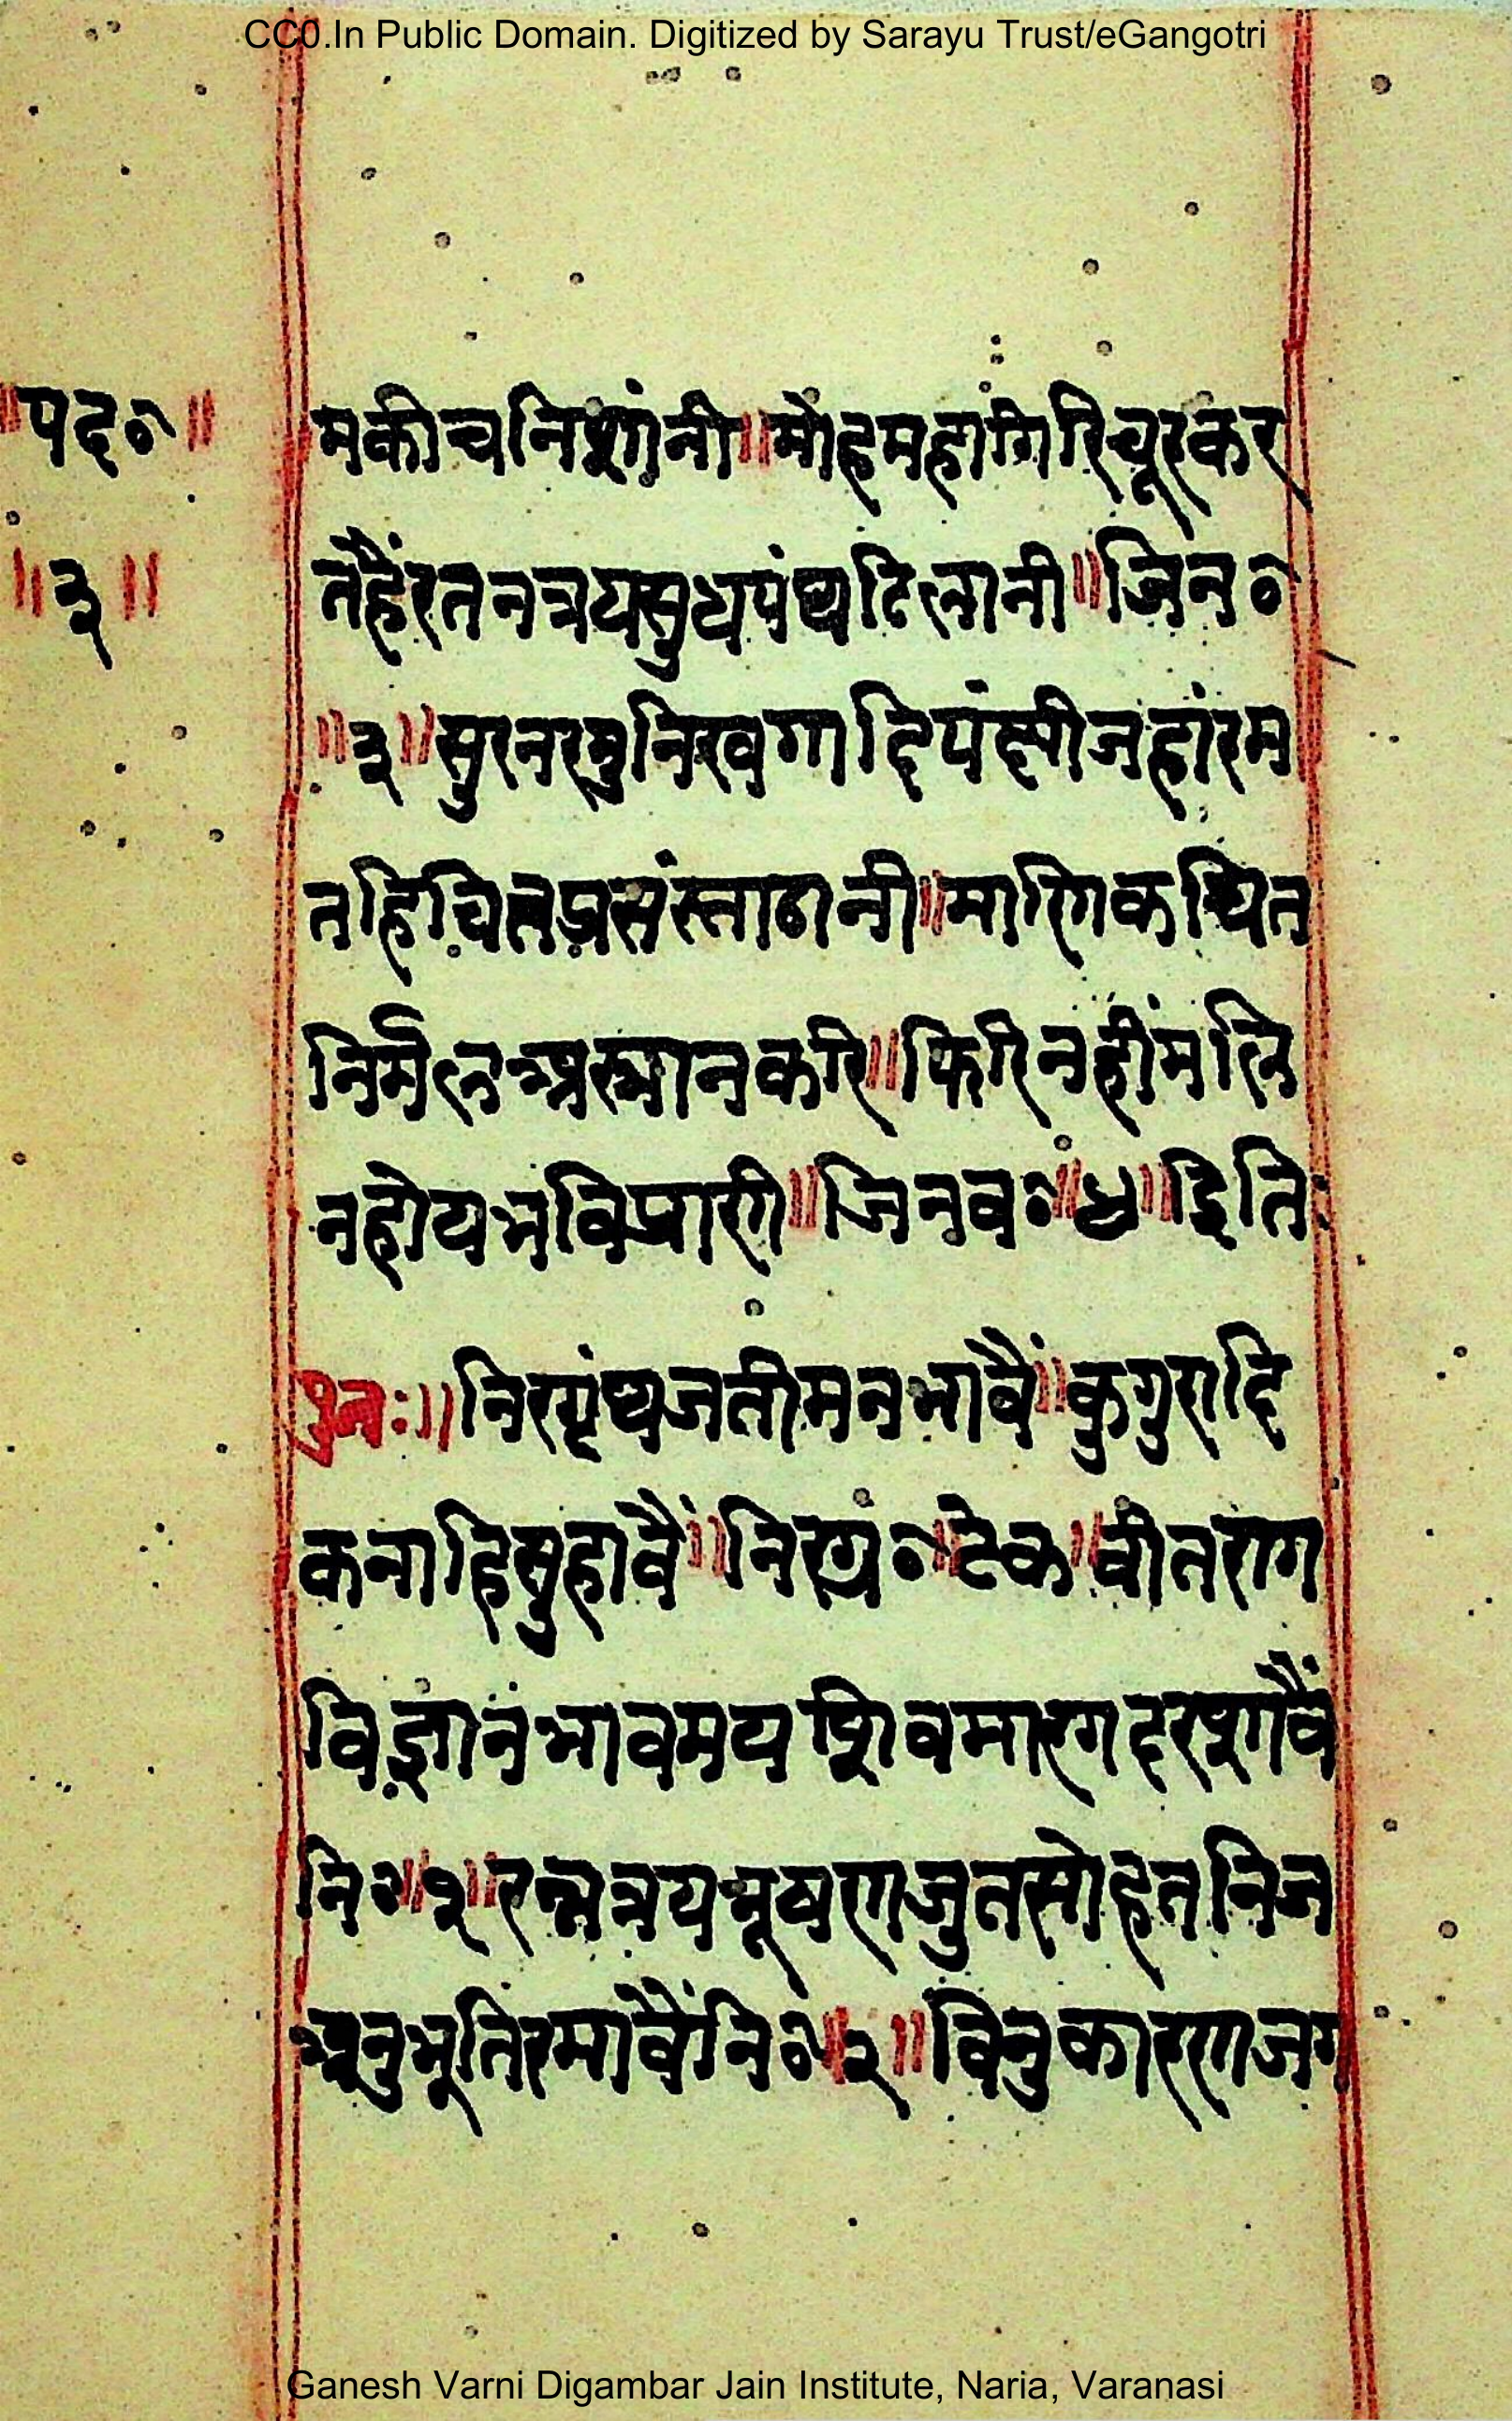 CC0.In Public Domain. Digitized by Sarayu Trust/eGangotri
॥पद०॥
॥३॥
मकीचनिशांनी॥मोहमहागिरिचूरकर
तहैंरतनत्रयसुधपंथढिलानी॥जिन०
॥३॥सुरनरमुनिखगादिपंक्षीजहांरम
तहिचितप्रसंस्ताठानी॥मारगिकथित
निर्मलअस्नानकरि॥फिरिनहींमलि
नहोयभविप्राणी॥जिनव०॥४॥इिति
पुनः॥निरग्रंथजतीमनभावै॥कुगुरादि
कनाहिसुहावैं॥निरग्रं०॥टेक॥वीतराग
विज्ञानभावमयशिवमारगदरशावैं
नि०॥१॥रत्नत्रयभूषणजुतसोहतनिज
अनुभूतिरमावैंनि०॥२॥विनुकारणजग
Ganesh Varni Digambar Jain Institute, Naria, Varanasi